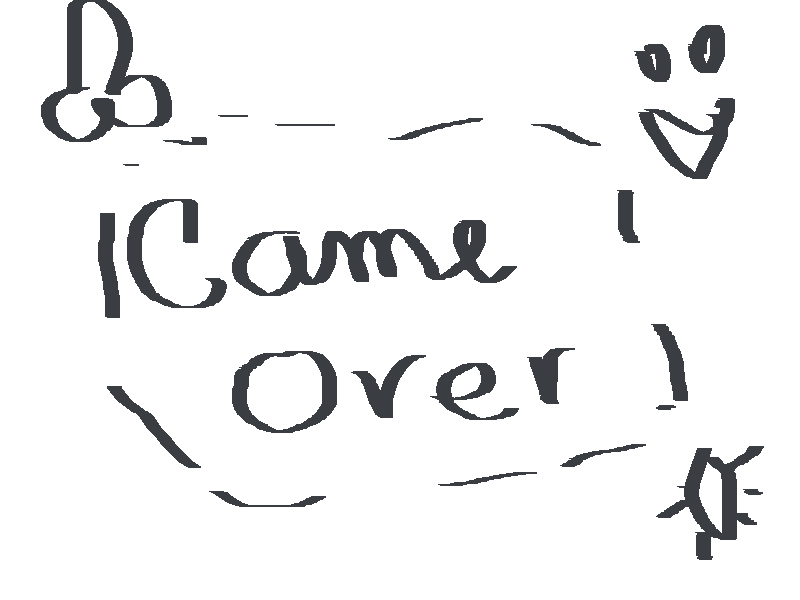 Came
Over